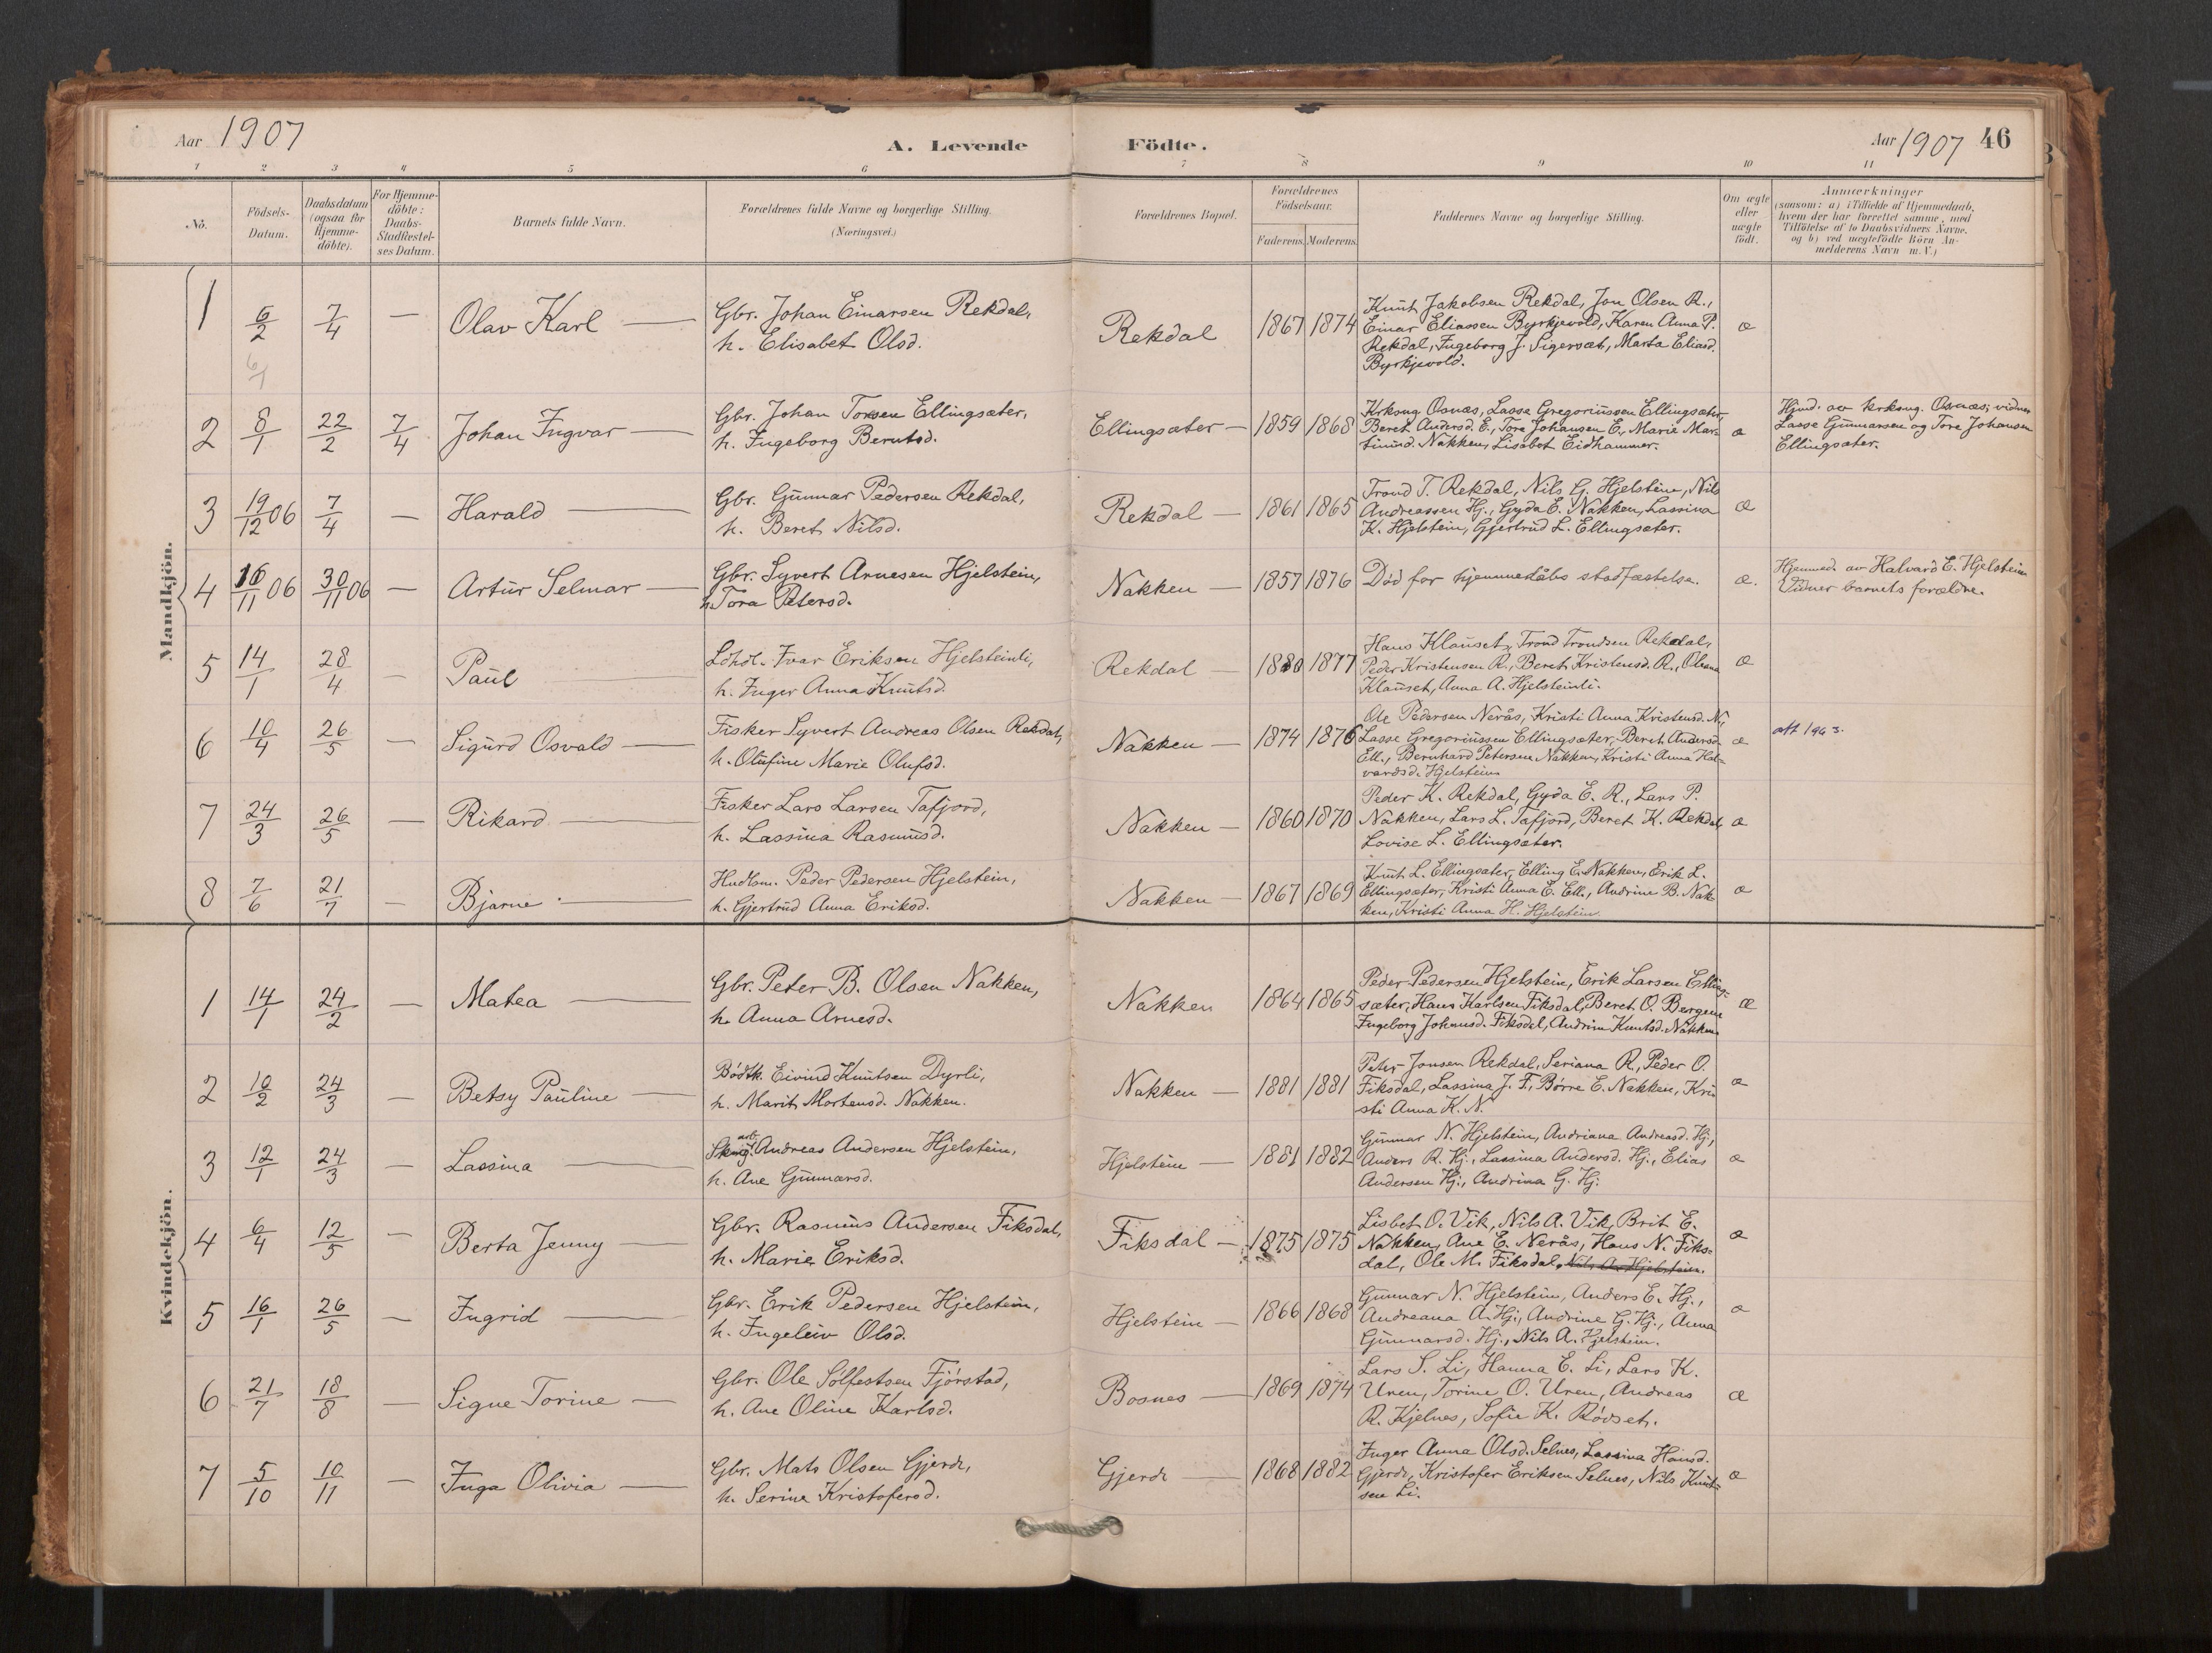 Aar 1907
A. Levende Födte.
Aar 1907 46
1 2 3 4 5 6 7 8 9 10 11
No.
Födsels-Datum.
Daabsdatum (ogsaa for Hjemme-döbte).
For Hjemme-döbte: Daabs-Stadfæstel-ses Datum.
Barnets fulde Navn.
Forældrenes fulde Navne og borgerlige Stilling. (Næringsvei.)
Forældrenes Bopæl.
Forældrenes Födselsaar.
Faderens. Moderens.
Faddernes Navne og borgerlige Stilling.
Om ægte eller uægte födt.
Anmærkninger
(saasom: a) i Tilfælde af Hjemmedaab, hvem der har forrettet samme, med Tilföielse af to Daabsvidners Navne, og b) ved uægtefödte Börn An-melderens Navn m.V.)
Mandkjön.
1 6/2 7/4 — Olav Karl —
6/1
Gbr. Johan Einarsen Rekdal,
h. Elisabet Olsd.
Rekdal 1867 1874
Knut Jakobsen Rekdal, Jon Olsen R.,
Einar Eliassen Byrkjevold, Karen Anna P.
Rekdal, Ingeborg J. Sigersæt, Marta Eliasd.
Byrkjevold.
æ
2 8/1 22/2 7/4 Johan Ingvar —
Gbr. Johan Torsen Ellingsæter,
h. Ingeborg Berntsd.
Ellingsæter — 1859 1868
Krksng Osnæs, Lasse Gregoriussen Ellingsæter,
Beret Andersd. E., Tore Johansen E., Marie Mar-
tinusd. Nakken, Lisabet Eidhammer.
æ
Hjmd. av krksng. Osnæs; vidner
Lasse Gunnarsen og Tore Johansen
Ellingsæter.
3 19/12 06 7/4 — Harald —
Gbr. Gunnar Pedersen Rekdal,
h. Beret Nilsd.
Rekdal — 1861 1865
Trond T. Rekdal, Nils G. Hjelstein, Nils
Andreassen Hj., Gyda E. Nakken, Lassina
K. Hjelstein, Gjertrud L. Ellingsæter.
æ
4 16/11 06 30/11 06 — Artur Selmar —
Gbr. Syvert Arnesen Hjelstein,
h. Tora Petersd.
Nakken — 1857 1876
Död for hjemmedåbs stadfæstelse.
æ.
Hjemmed. av Halvard E. Hjelstein
Vidner barnets forældre.
5 14/1 28/4 — Paul —
Ivar Eriksen Hjelsteinli,
h. Inger Anna Knutsd.
Rekdal — 1880 1877
Hans Klauset, Trond Trondsen Rekdal,
Peder Kristensen R., Beret Kristensd. R., Olsena
Klauset, Anna A. Hjelsteinli.
æ
6 10/4 26/5 — Sigurd Osvald —
Fisker Syvert Andreas Olsen Rekdal,
h. Olufine Marie Olufsd.
Nakken — 1874 1876
Ole Pedersen Nerås, Kristi Anna Kristensd. N.,
Lasse Gregoriussen Ellingsæter, Beret Andersd.
Ell., Bernhard Petersen Nakken, Kristi Anna Hal-
vardsd. Hjelstein.
æ
att 1943.
7 24/3 26/5 — Rikard —
Fisker Lars Larsen Tafjord,
h. Lassina Rasmusd.
Nakken — 1860 1870
Peder K. Rekdal, Gyda E. R., Lars P.
Nakken, Lars L. Tafjord, Beret K. Rekdal,
Lovise L. Ellingsæter.
æ
8 7/6 21/7 — Bjarne —
Hndlsm. Peder Pedersen Hjelstein,
h. Gjertrud Anna Eriksd.
Nakken — 1867 1869
Knut L. Ellingsæter, Elling E. Nakken, Erik L.
Ellingsæter, Kristi Anna E. Ell., Andrine B. Nak-
ken, Kristi Anna H. Hjelstein
æ
Kvindekjön.
1 14/1 24/2 — Matea —
Gbr. Peter B. Olsen Nakken,
h. Anna Arnesd.
Nakken 1864 1865
Peder Pedersen Hjelstein, Erik Larsen Elling-
sæter, Hans Karlsen Fiksdal, Beret O. Bergene
Ingeborg Johansd. Fiksdal, Andrine Knutsd. Nakken
æ
2 10/2 24/3 — Betsy Pauline —
Bødtk. Eivind Knutsen Dyrli,
h. Marit Mortensd. Nakken.
Nakken — 1881 1881
Peter Jonsen Rekdal, Seriana R., Peder O.
Fiksdal, Lassina J. F., Børre E. Nakken, Kri-
sti Anna K. N.
æ
3 12/1 24/3 — Lassina —
Andreas Andersen Hjelstein,
h. Ane Gunnarsd.
Hjelstein — 1881 1882
Gunnar N. Hjelstein, Andriana Andreasd. Hj,
Anders R. Hj., Lassina Andersd. Hj., Elias
Andersen Hj., Andrina G. Hj.
æ
4 6/4 12/5 — Berta Jenny —
Gbr. Rasmus Andersen Fiksdal,
h. Marie Eriksd.
Fiksdal — 1875 1875
Lisbet O. Vik, Nils A. Vik, Brit E.
Nakken, Ane E. Nerås, Hans N. Fiks-
dal, Ole M. Fiksdal, Nils A. Hjelstein.
æ
5 16/1 26/5 — Ingrid —
Gbr. Erik Pedersen Hjelstein,
h. Ingeleiv Olsd.
Hjelstein — 1866 1868
Gunnar N. Hjelstein, Anders E. Hj.,
Andreana A. Hj., Andrine G. Hj., Anna
Gunnarsd. Hj., Nils A. Hjelstein.
æ
6 21/7 18/8 — Signe Torine —
Gbr. Ole Sølfestsen Fjørstad,
h. Ane Oline Karlsd.
Bosnes — 1869 1874
Lars S. Li, Hanna E. Li, Lars K.
Uren, Torine O. Uren, Andreas
R. Kjelnes, Sofie K. Rødset.
æ
7 5/10 10/11 — Inga Olivia —
Gbr. Mats Olsen Gjerde,
h. Serine Kristofersd.
Gjerde — 1868 1882
Inger Anna Olsd. Selnes, Lassina Hansd.
Gjerde, Kristofer Eriksen Selnes, Nils Knut-
sen Li.
æ